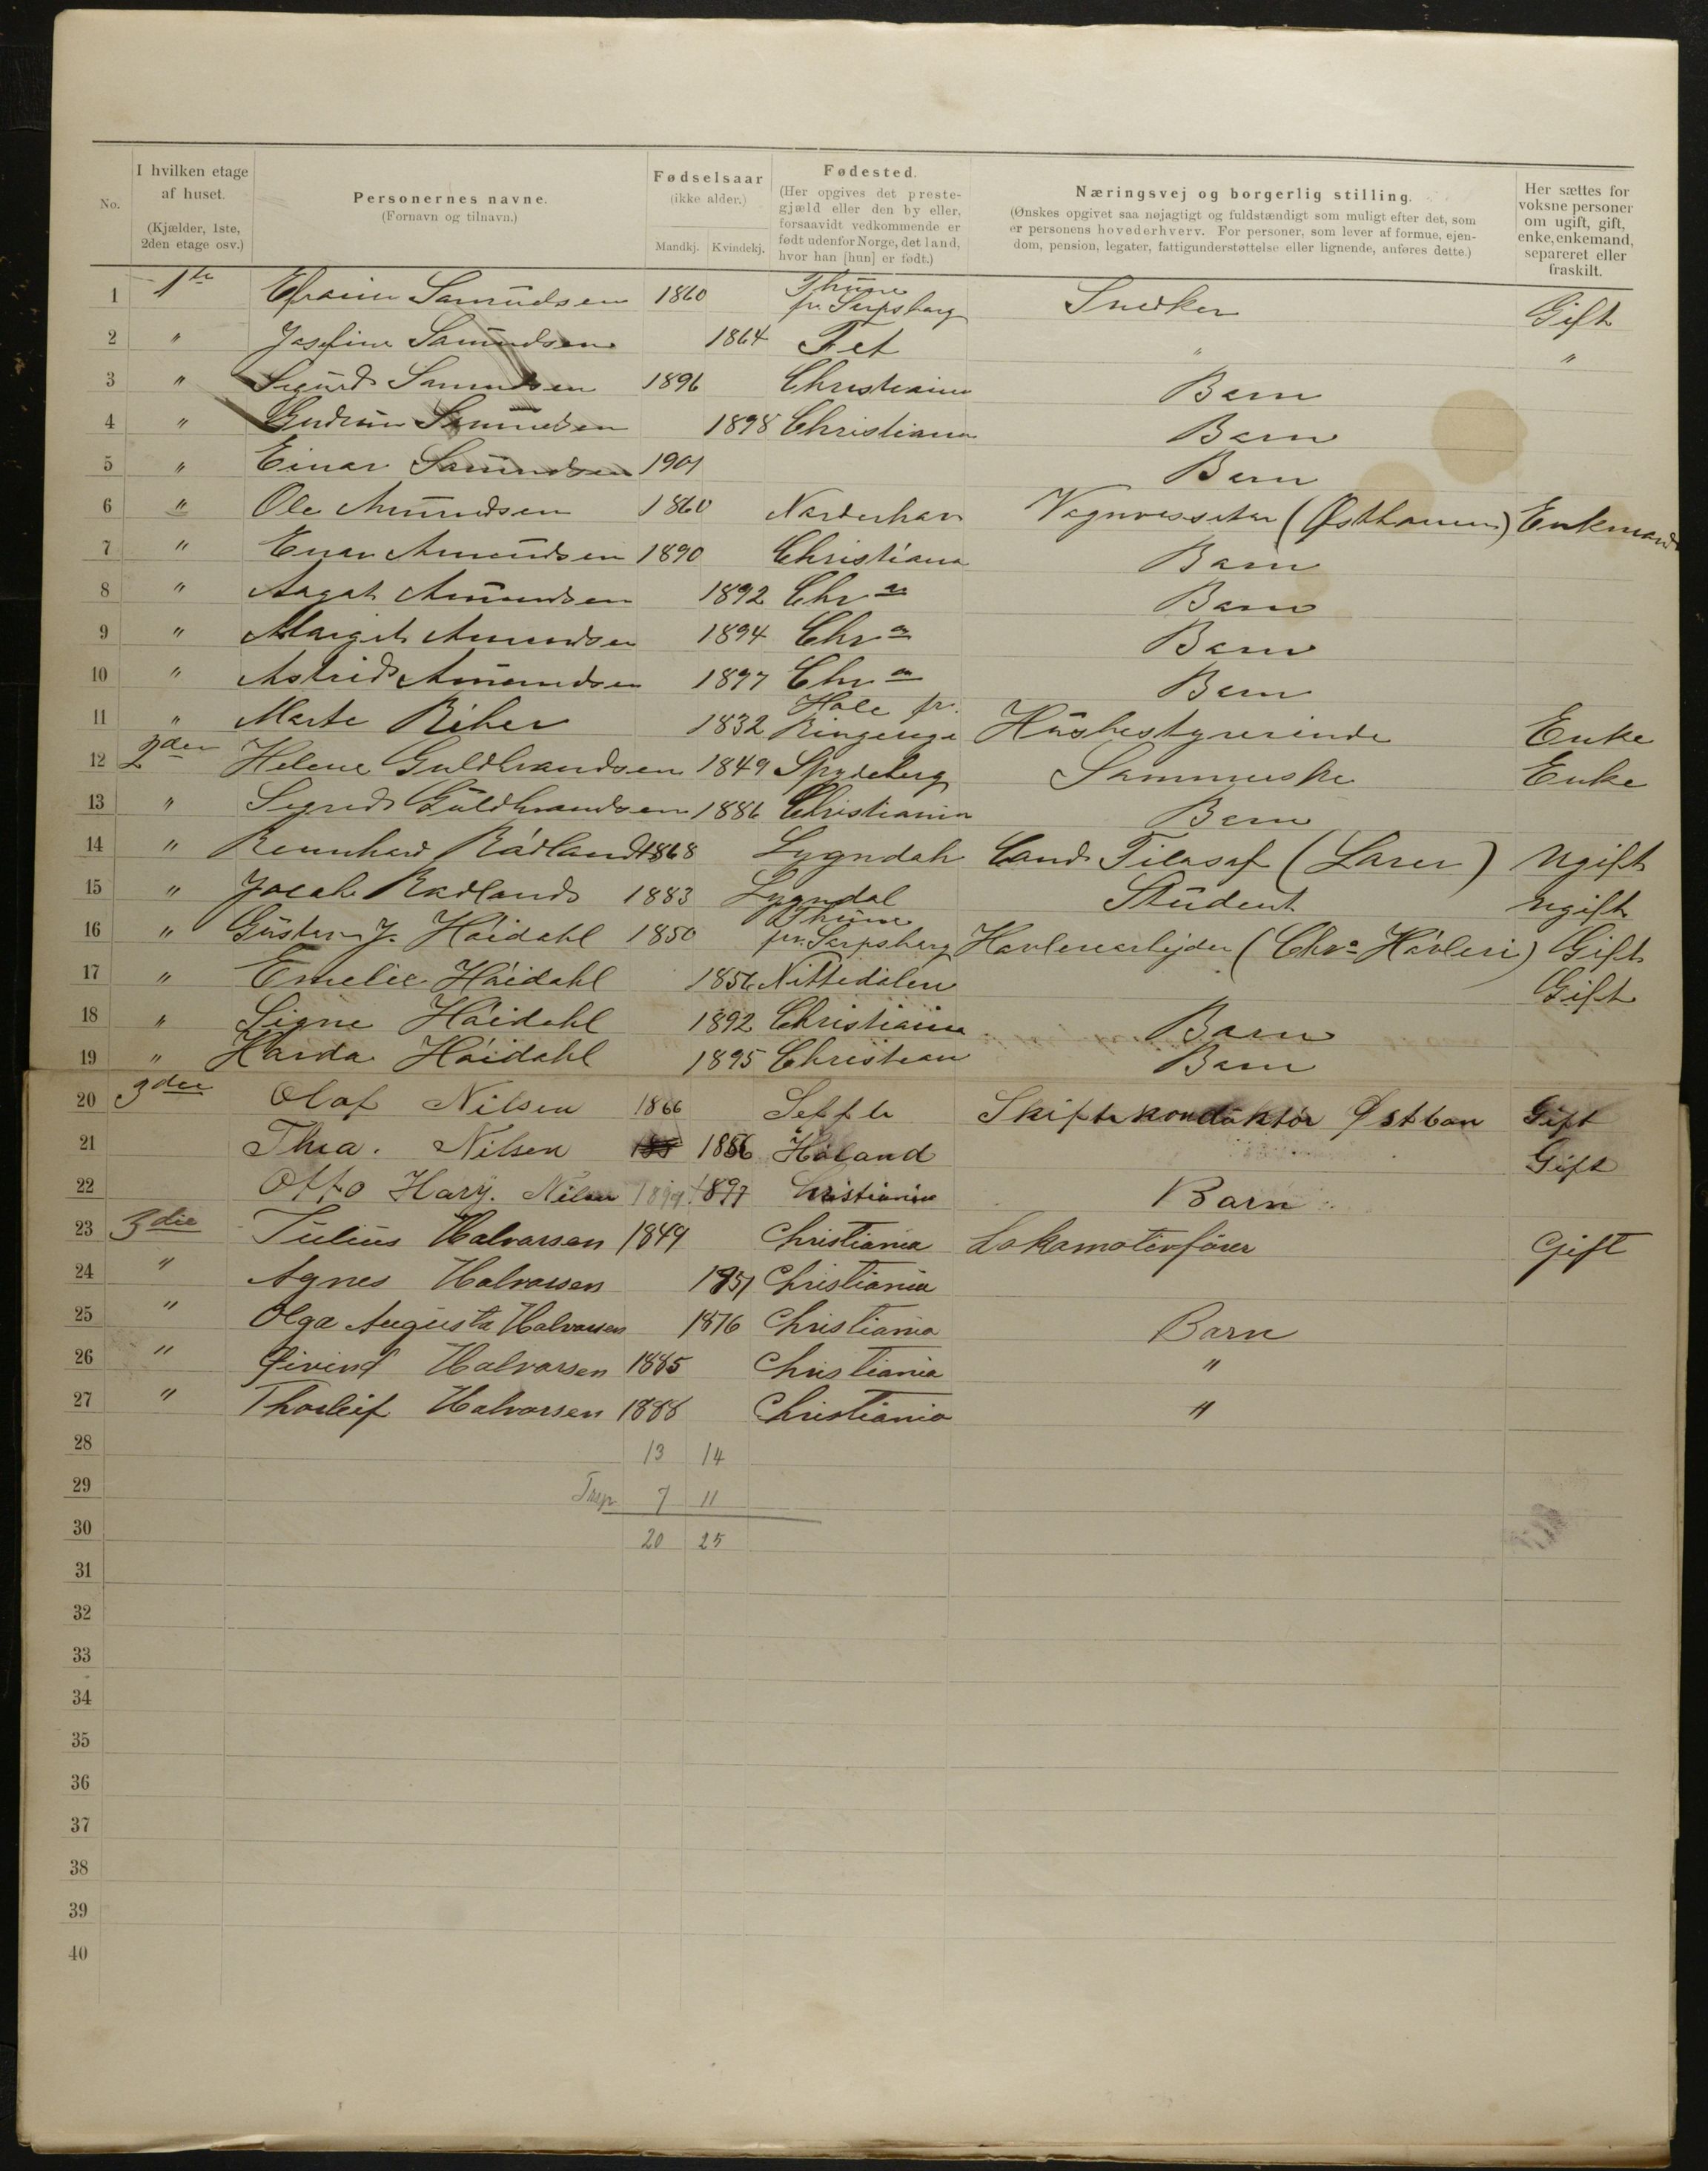 No.
I hvilken etage af huset. (Kjælder, 1ste, 2den etage osv.)
Personernes navne. (Fornavn og tilnavn.)
Fødselsaar (ikke alder.) Mandkj. Kvindekj.
Fødested. (Her opgives det prestegjæld eller den by eller, forsaavidt vedkommende er født udenfor Norge, det land, hvor han [hun] er født.)
Næringsvej og borgerlig stilling. (Ønskes opgivet saa nøjagtigt og fuldstændigt som muligt efter det, som er personens hovederhverv. For personer, som lever af formue, ejendom, pension, legater, fattigunderstøttelse eller lignende, anføres dette.)
Her sættes for voksne personer om ugift, gift, enke, enkemand, separeret eller fraskilt.
1 1te Efraim Samudsen 1860 Thune pr. Sarpsborg Snedker Gift
2 " Josefine Samundsen 1864 Fet " "
3 " Sigurd Samundsen 1896 Christiania Barn
4 " Gudrun Samundsen 1898 Christiania Barn
5 " Einar Samundsen 1901 Barn
6 " Ole Amundsen 1860 Norderhov Vognvisiter (Østbanen) Enkemand
7 " Enar Amundsen 1890 Christiana Barn
8 " Aagat Amundsen 1892 Chra Barn
9 " Margit Amundsen 1894 Chra Barn
10 " Astrid Amundsen 1897 Chra Barn
11 " Marte Riber 1832 Hole pr. Ringerige Husbestyrerinde Enke
12 2den Helene Guldbrandsen 1849 Spydeberg Sømmerske Enke
13 " Sigrid Guldbrandsen 1886 Christiania Barn
14 " Bernhard Rødland 1868 Lyngdal Cand Filosof (Lærer) Ugift
15 " Jacob Rødland 1883 Lyngdal Student Ugift
16 " Gustav J. Høidahl 1850 Thune pr. Sarpsborg Høvleriarbejder (Chra Høvleri) Gift
17 " Emelie Høidahl 1856 Nittedalen Gift
18 " Signe Høidahl 1892 Christiania Barn
19 " Harda Høidahl 1895 Christian Barn
20 3die Olaf Nilsen 1866 Skiftekonduktør Østban Gift
21 Thea. Nilsen 1856 Høland Gift
22 Otto Harj. Nilsen 1897 1897 Christiania Barn
23 3die Julius Halvorsen 1849 Christiania Lokomotivfører Gift
24 " Agnes Halvorsen 1851 Christiania
25 " Olga Augusta Halvorsen 1876 Christiania Barn
26 " Øivind Halvorsen 1885 Christiania "
27 " Thorleif Halvorsen 1888 Christiania "
28 13 14
29 Trsp. 7 11
30 20 25
31
32
33
34
35
36
37
38
39
40